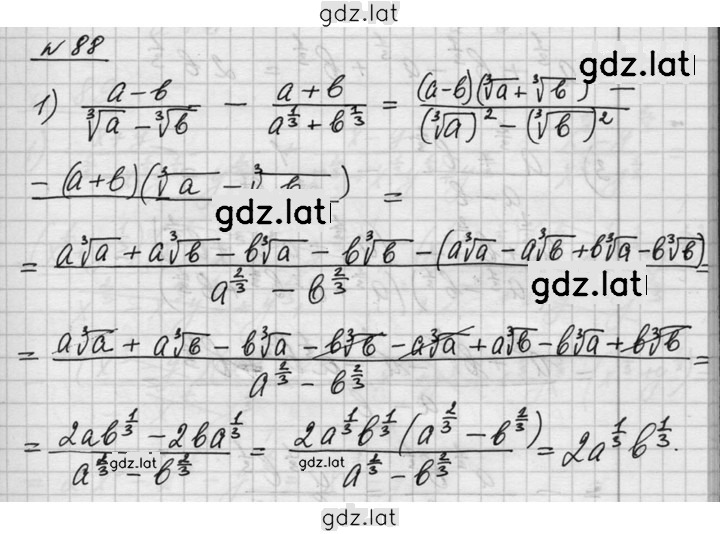 gdz.lat
№ 88
1) (a−b)/(∛a − ∛b) − (a+b)/(a^{1/3} + b^{1/3}) = (a−b)(∛a + ∛b) −/((∛a)² − (∛b)²)
gdz.lat
− (a+b)(∛a − ∛b) =
gdz.lat
= (a∛a + a∛b − b∛a − b∛b − (a∛a − a∛b + b∛a − b∛b))/(a^{2/3} − b^{2/3}) =
gdz.lat
= (a∛a + a∛b − b∛a − b∛b − a∛a + a∛b − b∛a + b∛b)/(a^{2/3} − b^{2/3}) =
= (2ab^{1/3} − 2ba^{1/3})/(a^{2/3} − b^{2/3}) = 2a^{1/3}b^{1/3}(a^{2/3} − b^{2/3})/(a^{2/3} − b^{2/3}) = 2a^{1/3}b^{1/3}.
gdz.lat gdz.lat
gdz.lat